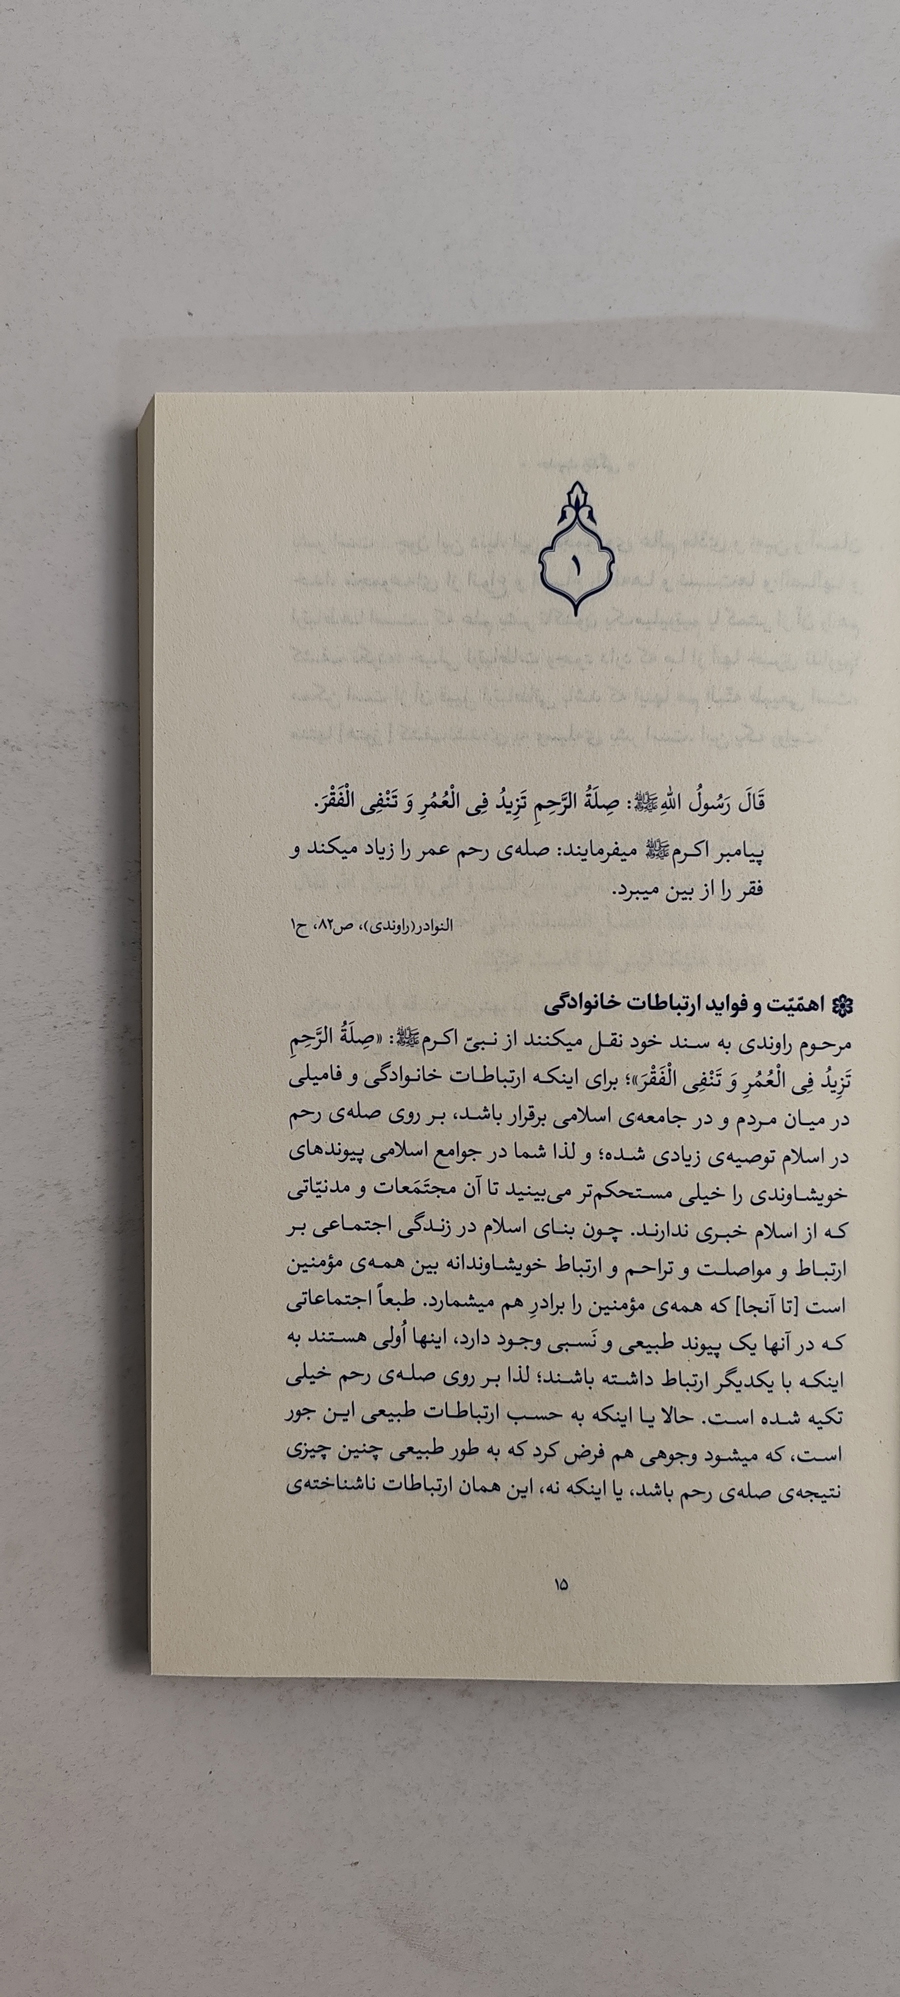 ۱
قَالَ رَسُولُ اللهِ ﷺ: صِلَةُ الرَّحِمِ تَزِیدُ فِی الْعُمُرِ وَ تَنْفِی الْفَقْرَ.
پیامبر اکرم ﷺ میفرمایند: صله‌ی رحم عمر را زیاد میکند و
فقر را از بین میبرد.
النوادر(راوندی)، ص۸۲، ح۱
اهمّیّت و فواید ارتباطات خانوادگی
مرحوم راوندی به سند خود نقل میکنند از نبیّ اکرم ﷺ: «صِلَةُ الرَّحِمِ
تَزِیدُ فِی الْعُمُرِ وَ تَنْفِی الْفَقْرَ»؛ برای اینکه ارتباطات خانوادگی و فامیلی
در میان مردم و در جامعه‌ی اسلامی برقرار باشد، بر روی صله‌ی رحم
در اسلام توصیه‌ی زیادی شده؛ و لذا شما در جوامع اسلامی پیوندهای
خویشاوندی را خیلی مستحکم‌تر می‌بینید تا آن مجتَمَعات و مدنیّاتی
که از اسلام خبری ندارند. چون بنای اسلام در زندگی اجتماعی بر
ارتباط و مواصلت و تراحم و ارتباط خویشاوندانه بین همه‌ی مؤمنین
است [تا آنجا] که همه‌ی مؤمنین را برادرِ هم میشمارد. طبعاً اجتماعاتی
که در آنها یک پیوند طبیعی و نَسبی وجود دارد، اینها اُولی هستند به
اینکه با یکدیگر ارتباط داشته باشند؛ لذا بر روی صله‌ی رحم خیلی
تکیه شده است. حالا یا اینکه به حسب ارتباطات طبیعی این جور
است، که میشود وجوهی هم فرض کرد که به طور طبیعی چنین چیزی
نتیجه‌ی صله‌ی رحم باشد، یا اینکه نه، این همان ارتباطات ناشناخته‌ی
۱۵